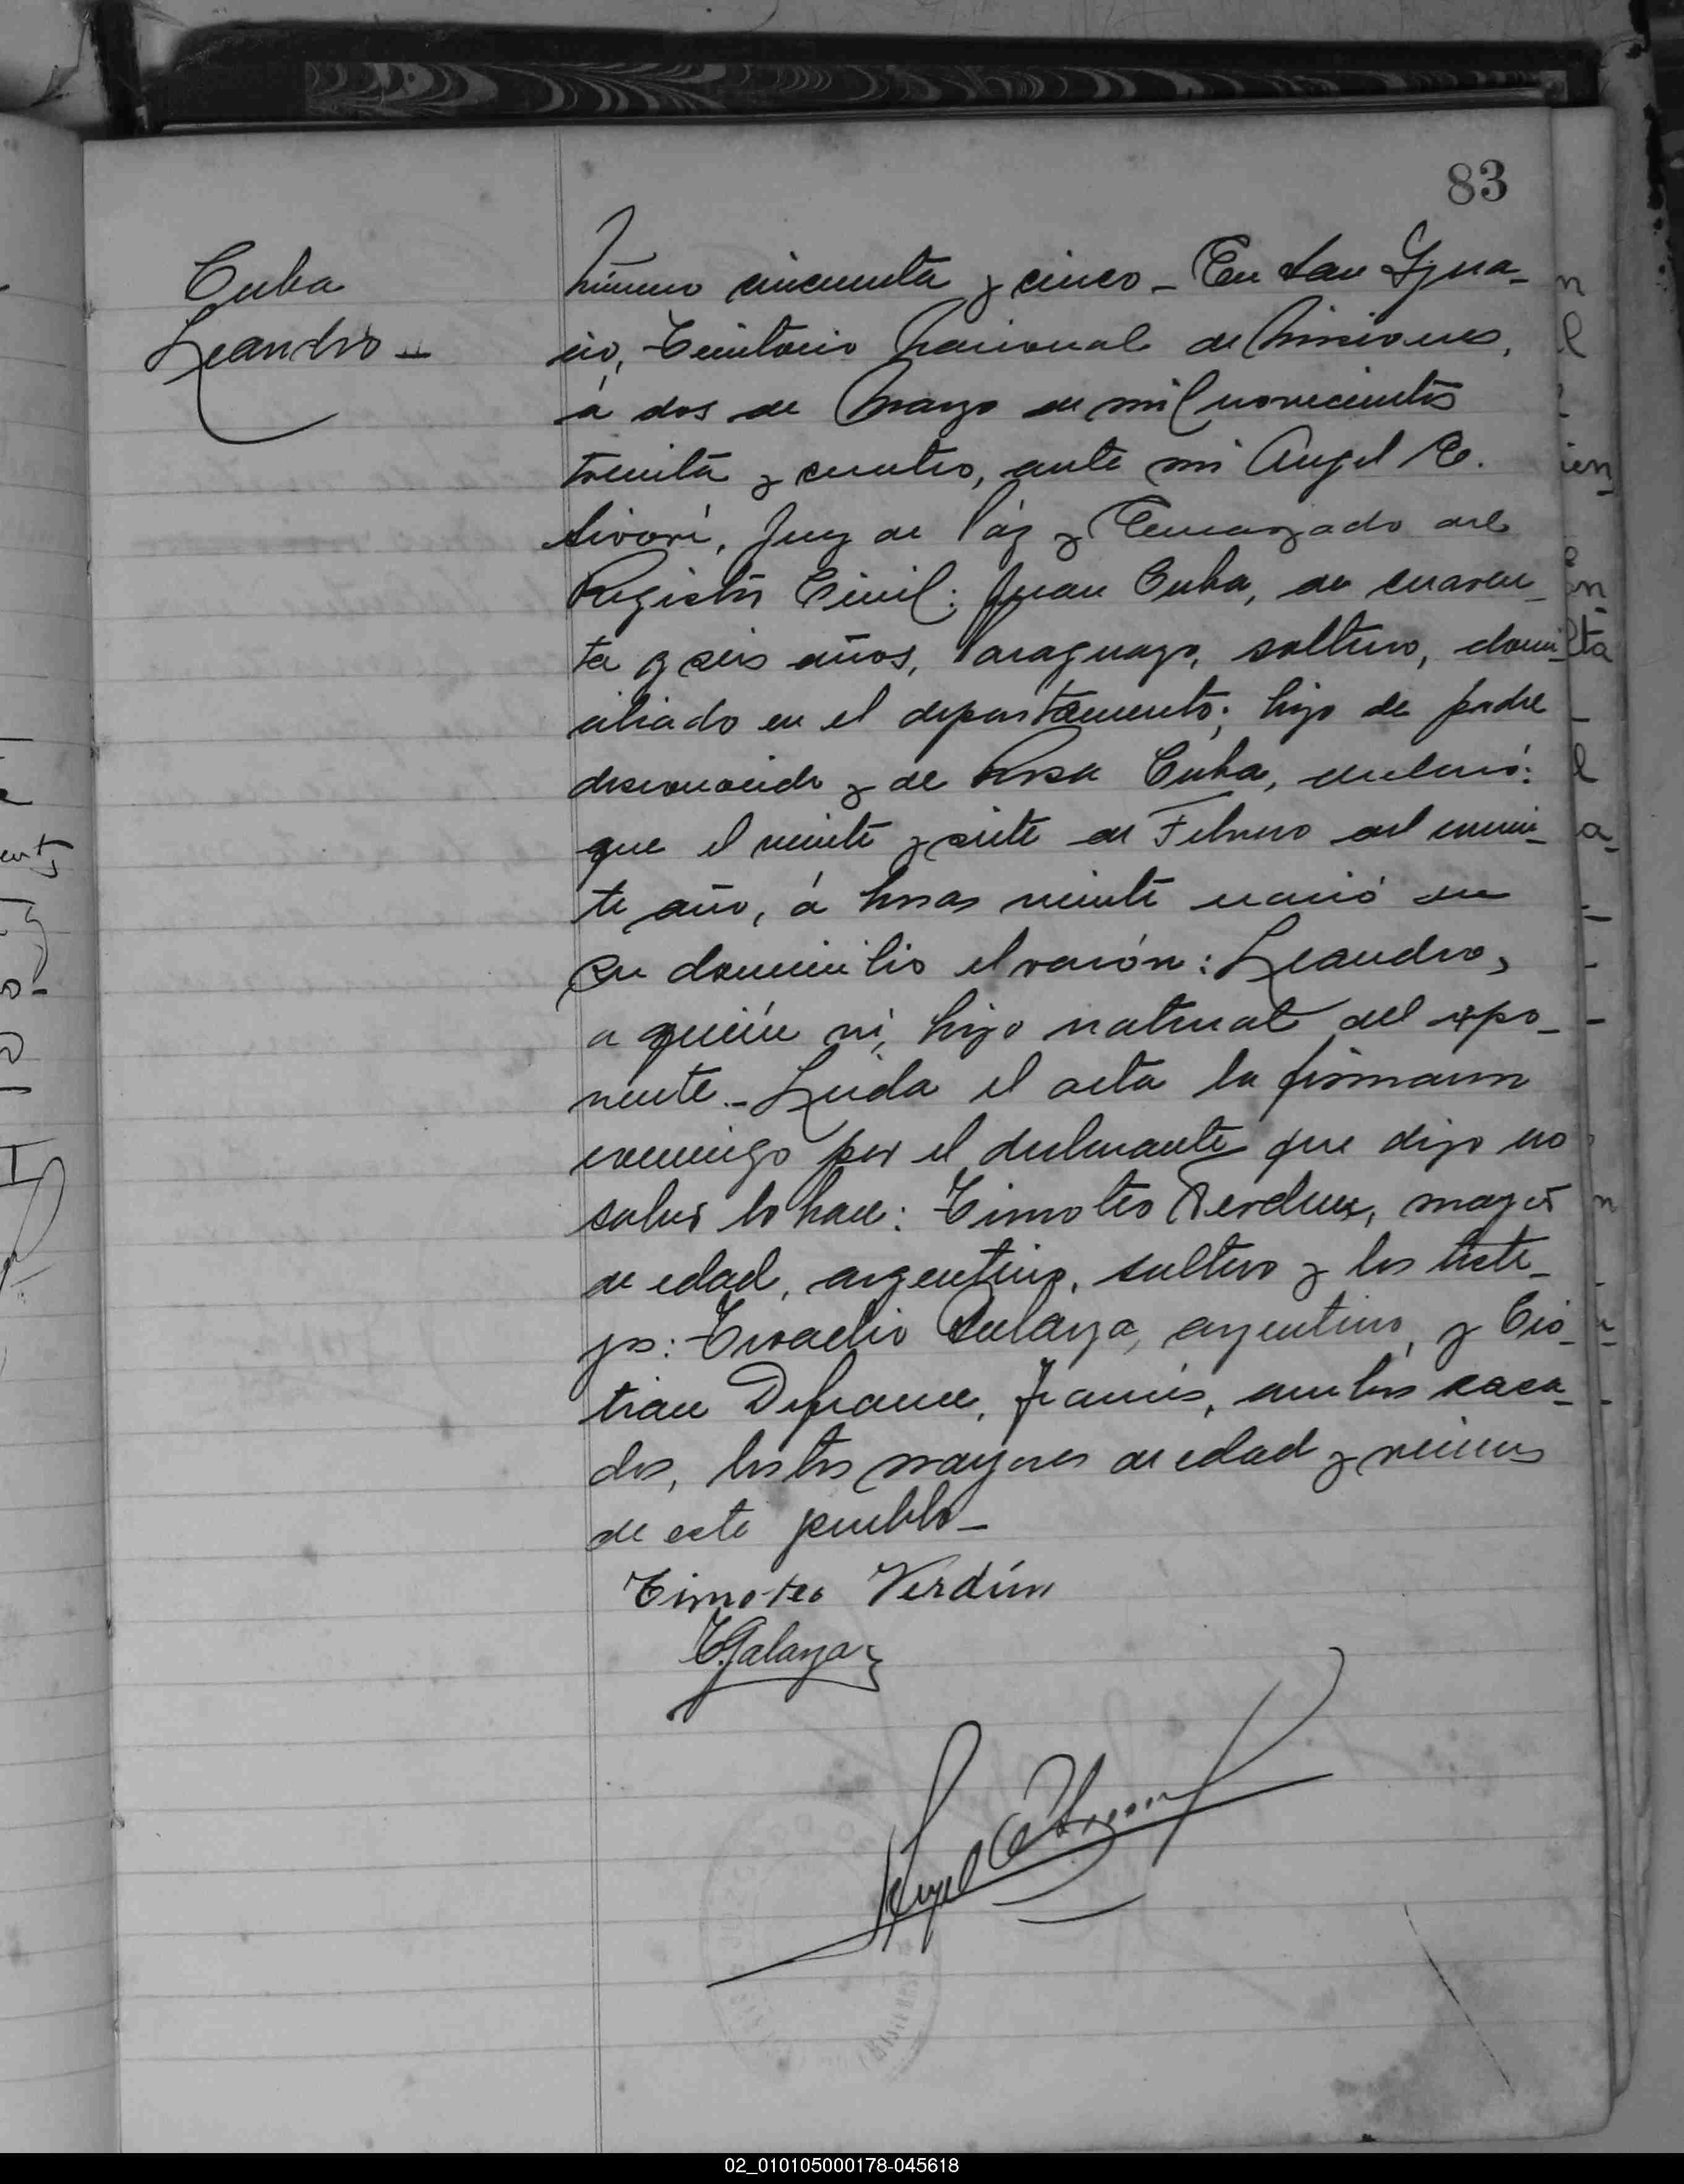 83
Cuba
Leandro
Número cincuenta y cinco - En San Ygna-
cio, Territorio Nacional de Misiones,
á dos de Marzo de mil novecientos
treinta y cuatro, ante mi Angel E.
Juez de Páz y Encargado del
Registro Civil: Juan Cuba, de cuaren-
ta y seis años, Paraguayo, soltero, domi-
ciliado en el departamento; hijo de padre
desconocido y de Rosa Cuba, declaró:
que el veinte y siete de Febrero del corrien-
te año, á horas veinte nació en
su domicilio el varón: Leandro,
a quién ví, hijo natural del expo-
nente.- Leida el acta la firmaron
conmigo por el declarante que dijo no
saber lo hace: Timoteo Verdun, mayor
de edad, argentino, soltero y los testi-
gos: Galarza, argentino, y Cris-
tian Defrance, francés, ambos casa-
dos, todos mayores de edad y vecinos
de este pueblo-
Timoteo Verdún
Galarza
Angel
02_010105000178-045618